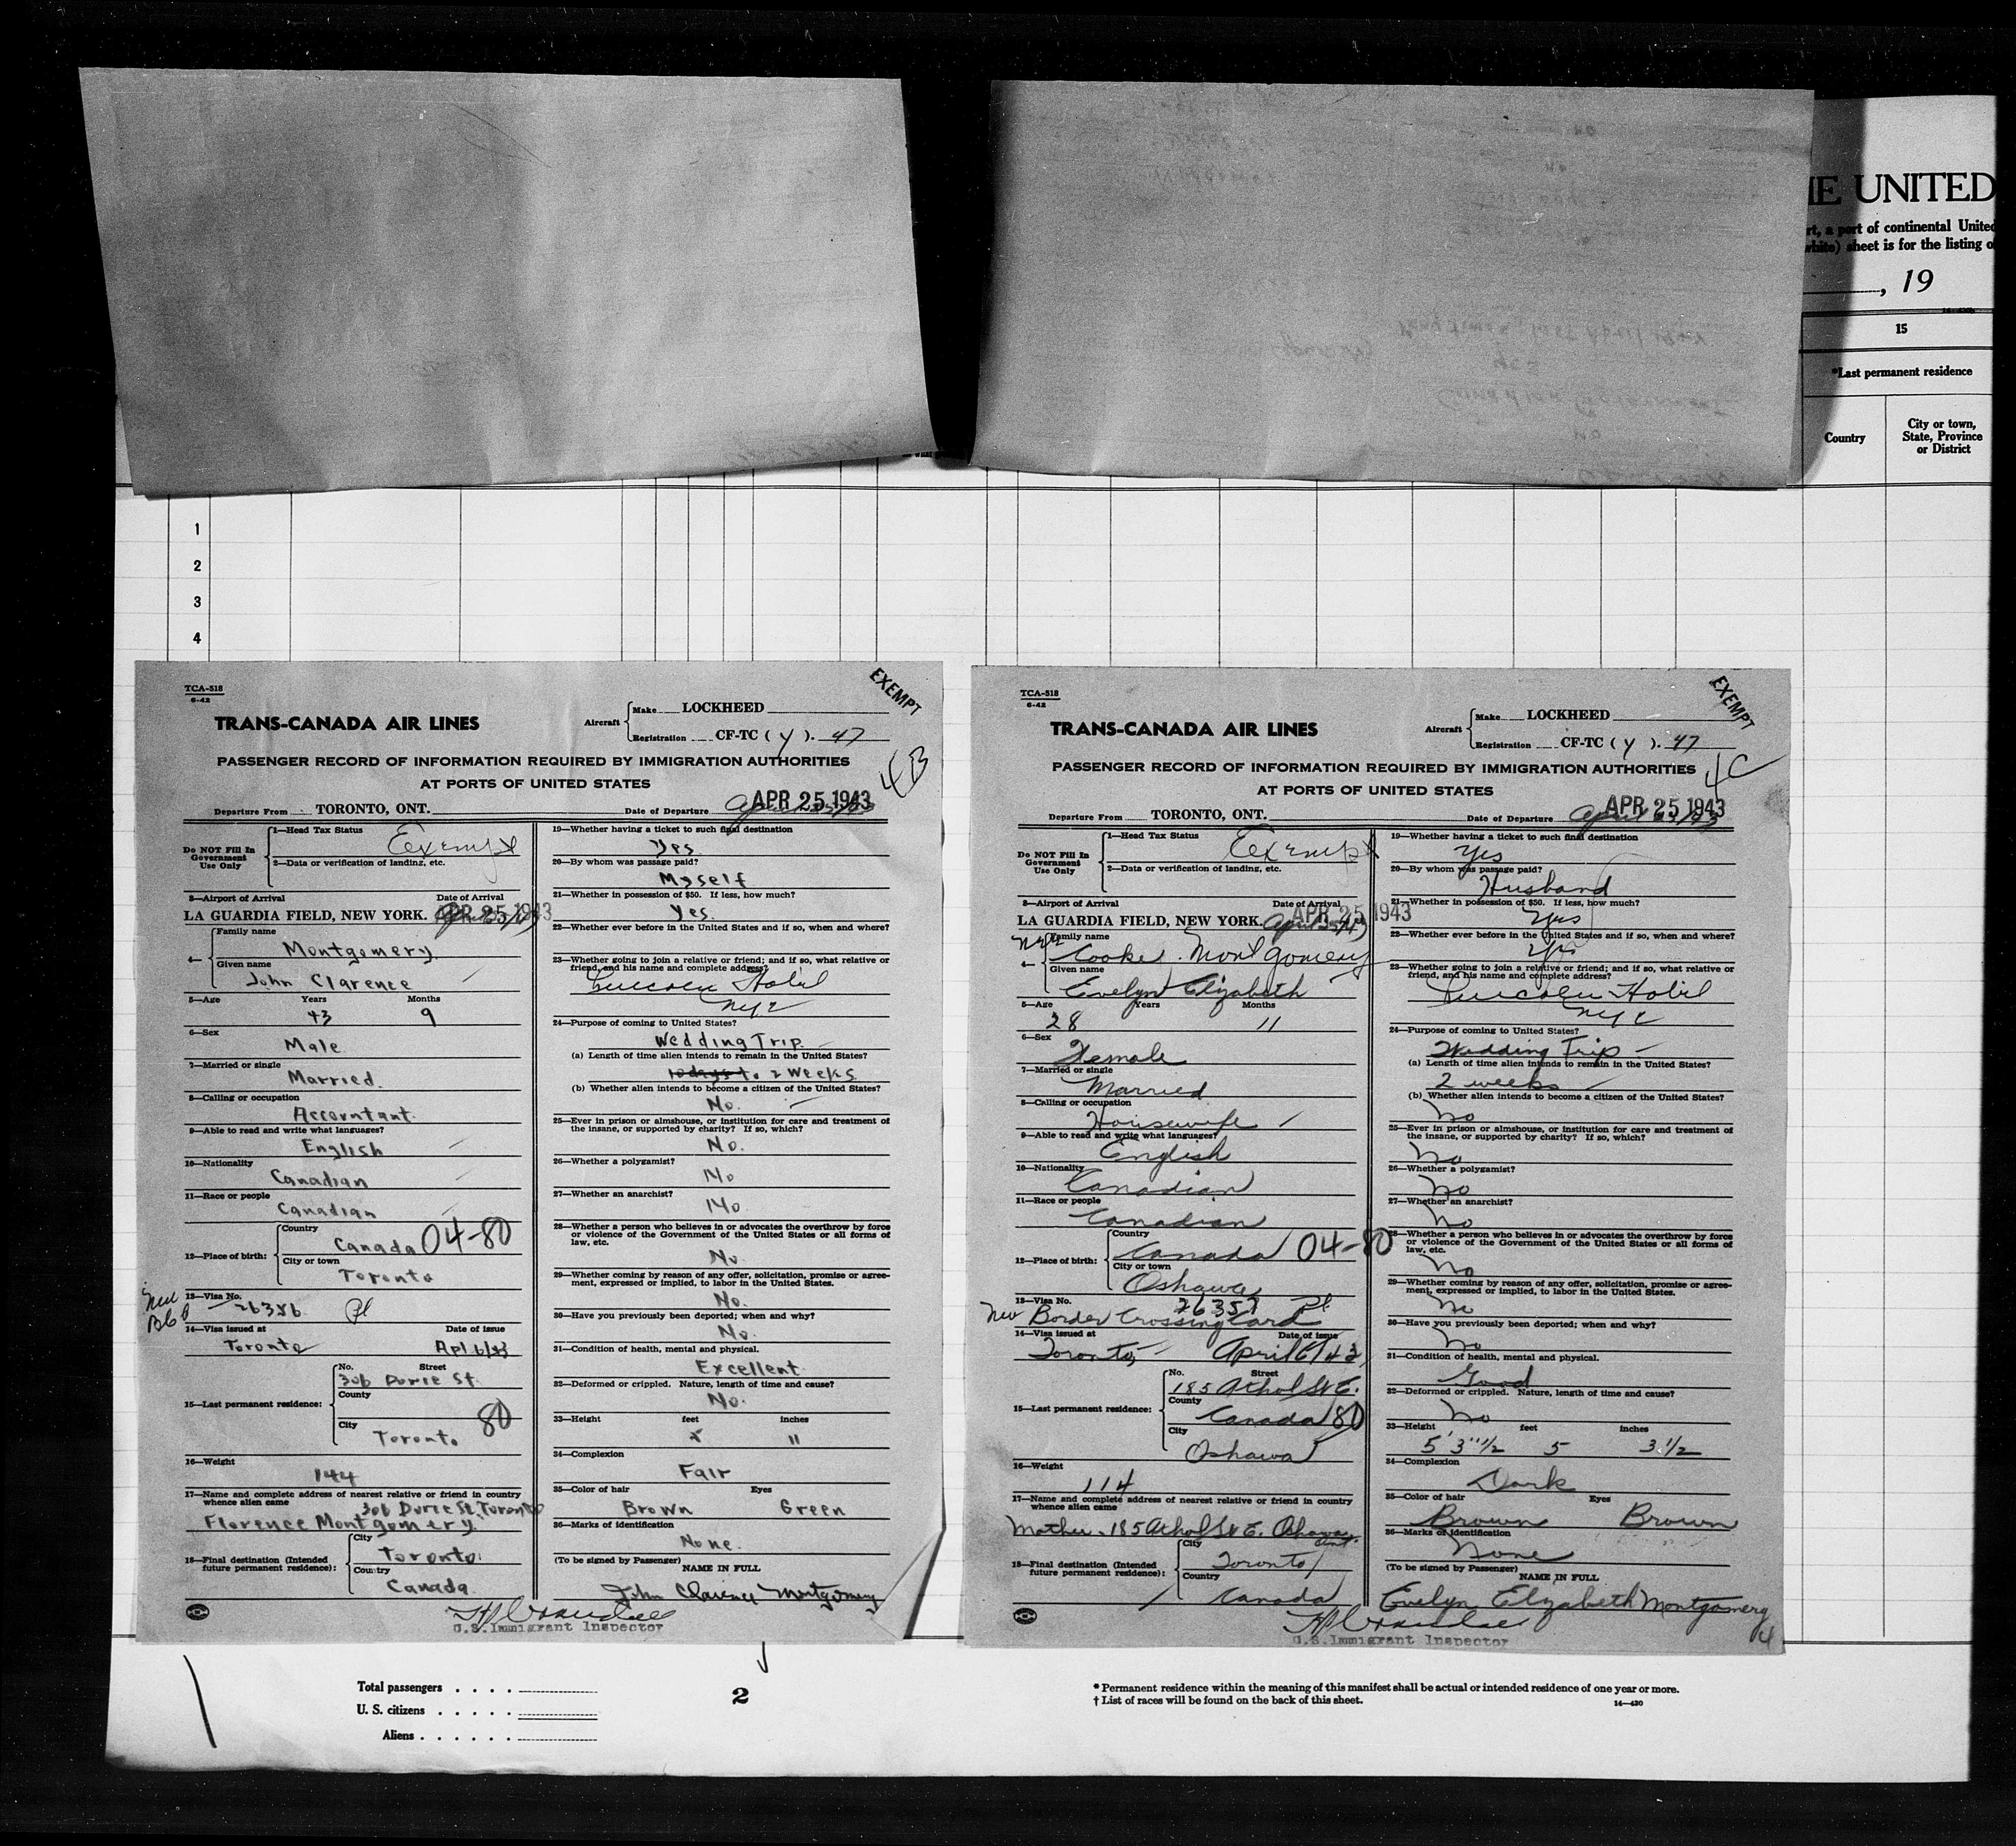 HE UNITED
rt, a port of continental United
white) sheet is for the listing o
, 19
15
*Last permanent residence
Country
City or town, State, Province or District
1
2
3
4
TCA-518
6-42
EXEMPT
TRANS-CANADA AIR LINES
Aircraft
Make LOCKHEED
Registration CF-TC ( Y ). 47
PASSENGER RECORD OF INFORMATION REQUIRED BY IMMIGRATION AUTHORITIES
AT PORTS OF UNITED STATES
4B
Departure From TORONTO, ONT.
Date of Departure April 25/43 APR 25 1943
Do NOT Fill In Government Use Only
1—Head Tax Status Exempt
2—Data or verification of landing, etc.
3—Airport of Arrival Date of Arrival
LA GUARDIA FIELD, NEW YORK. APR 25 1943
4—
Family name
Montgomery
Given name
John Clarence
5—Age Years Months
43 9
6—Sex
Male
7—Married or single
Married.
8—Calling or occupation
Accountant.
9—Able to read and write what languages?
English
10—Nationality
Canadian
11—Race or people
Canadian
12—Place of birth:
Country
Canada 04-80
City or town
Toronto
13—Visa No.
26386
14—Visa issued at Date of issue
Toronto Apl 6/43
15—Last permanent residence:
No. Street
306 Durie St.
County
City
Toronto 80
16—Weight
144
17—Name and complete address of nearest relative or friend in country
whence alien came
306 Durie St. Toronto
Florence Montgomery.
18—Final destination (Intended
future permanent residence):
City
Toronto.
Country
Canada.
19—Whether having a ticket to such final destination
Yes
20—By whom was passage paid?
Myself
21—Whether in possession of $50. If less, how much?
Yes.
22—Whether ever before in the United States and if so, when and where?
23—Whether going to join a relative or friend; and if so, what relative or
friend, and his name and complete address?
Lincoln Hotel
NYC
24—Purpose of coming to United States?
Wedding Trip
(a) Length of time alien intends to remain in the United States?
10 days to 2 Weeks
(b) Whether alien intends to become a citizen of the United States?
No.
25—Ever in prison or almshouse, or institution for care and treatment of
the insane, or supported by charity? If so, which?
No.
26—Whether a polygamist?
No
27—Whether an anarchist?
No
28—Whether a person who believes in or advocates the overthrow by force
or violence of the Government of the United States or all forms of
law, etc.
No
29—Whether coming by reason of any offer, solicitation, promise or agree-
ment, expressed or implied, to labor in the United States.
No.
30—Have you previously been deported; when and why?
No.
31—Condition of health, mental and physical.
Excellent.
32—Deformed or crippled. Nature, length of time and cause?
No.
33—Height feet inches
5 11
34—Complexion
Fair
35—Color of hair Eyes
Brown Green
36—Marks of identification
None.
(To be signed by Passenger) NAME IN FULL
John Clarence Montgomery
U.S. Immigrant Inspector
TCA-518
6-42
EXEMPT
TRANS-CANADA AIR LINES
Aircraft
Make LOCKHEED
Registration CF-TC ( Y ). 47
PASSENGER RECORD OF INFORMATION REQUIRED BY IMMIGRATION AUTHORITIES
AT PORTS OF UNITED STATES
4C
Departure From TORONTO, ONT.
Date of Departure April 25/43 APR 25 1943
Do NOT Fill In Government Use Only
1—Head Tax Status Exempt
2—Data or verification of landing, etc.
3—Airport of Arrival Date of Arrival
LA GUARDIA FIELD, NEW YORK. April 25/43 APR 25 1943
4—
Family name
Cooke. Montgomery
Given name
Evelyn Elizabeth
5—Age Years Months
28 11
6—Sex
Female
7—Married or single
Married
8—Calling or occupation
Housewife
9—Able to read and write what languages?
English
10—Nationality
Canadian
11—Race or people
Canadian
12—Place of birth:
Country
Canada 04-80
City or town
Oshawa
13—Visa No. 26387
New Border Crossing Card
14—Visa issued at Date of issue
Toronto April 6/43
15—Last permanent residence:
No. Street
185 Athol St E.
County
Canada 80
City
Oshawa
16—Weight
114
17—Name and complete address of nearest relative or friend in country
whence alien came
Mother - 185 Athol St E. Oshawa Ont.
18—Final destination (Intended
future permanent residence):
City
Toronto
Country
Canada
19—Whether having a ticket to such final destination
Yes
20—By whom was passage paid?
Husband
21—Whether in possession of $50. If less, how much?
Yes
22—Whether ever before in the United States and if so, when and where?
Yes
23—Whether going to join a relative or friend; and if so, what relative or
friend, and his name and complete address?
Lincoln Hotel
NYC
24—Purpose of coming to United States?
Wedding Trip
(a) Length of time alien intends to remain in the United States?
2 weeks
(b) Whether alien intends to become a citizen of the United States?
No
25—Ever in prison or almshouse, or institution for care and treatment of
the insane, or supported by charity? If so, which?
No
26—Whether a polygamist?
No
27—Whether an anarchist?
No
28—Whether a person who believes in or advocates the overthrow by force
or violence of the Government of the United States or all forms of
law, etc.
No
29—Whether coming by reason of any offer, solicitation, promise or agree-
ment, expressed or implied, to labor in the United States.
No
30—Have you previously been deported; when and why?
No
31—Condition of health, mental and physical.
Good
32—Deformed or crippled. Nature, length of time and cause?
No
33—Height feet inches
5' 3"1/2 5 3 1/2
34—Complexion
Dark
35—Color of hair Eyes
Brown Brown
36—Marks of identification
None
(To be signed by Passenger) NAME IN FULL
Evelyn Elizabeth Montgomery
U.S. Immigrant Inspector
4
Total passengers
U. S. citizens
Aliens
2
* Permanent residence within the meaning of this manifest shall be actual or intended residence of one year or more.
† List of races will be found on the back of this sheet.
14—430